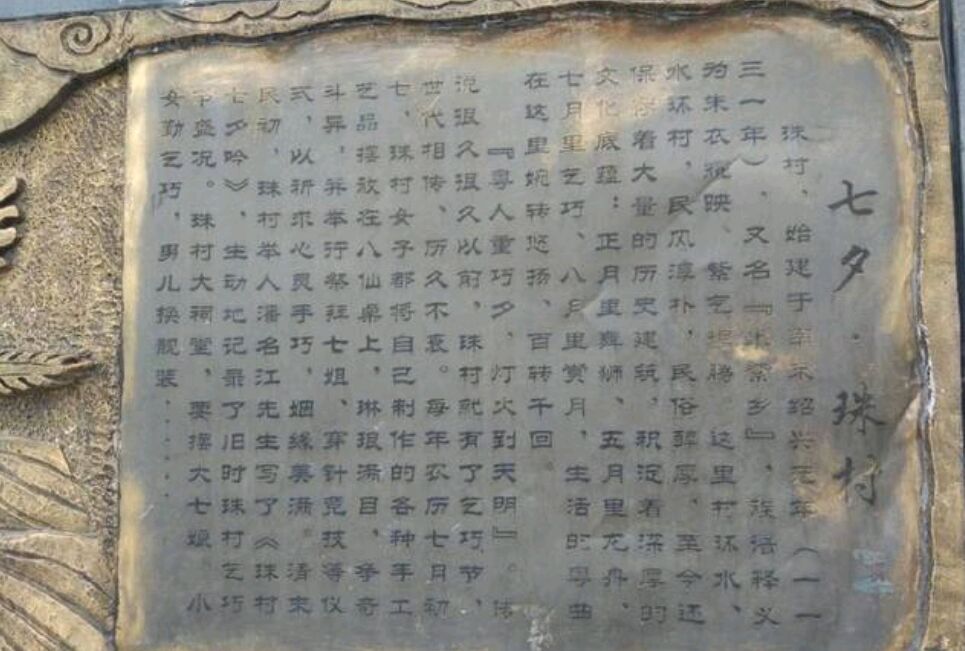 七夕·珠村
珠村，始建于南宋绍兴元年（一一
三一年），又名『朱紫乡』，族语释义
为朱衣掩映、紫气相腾。这里村环水、
水环村，民风淳朴，民俗醇厚，至今还
保存着大量的历史建筑，积淀着深厚的
文化底蕴：正月里舞狮、五月里龙舟、
七月里艺巧、八月里赏月，生活的粤曲
在这里婉转悠扬、百转千回。
『粤人重巧夕，灯火到天明』。传
说很久很久以前，珠村就有了艺巧节，
世代相传，历久不衰。每年农历七月初
七，珠村女子都将自己制作的各种手工
艺品摆放在八仙桌上，琳琅满目，争奇
斗异，并举行祭拜七姐、穿针竞技等仪
式，以祈求心灵手巧，姻缘美满。清末
民初，珠村举人潘名江先生写了《珠村
七夕吟》，生动地记录了旧时珠村艺巧
节盛况。珠村大祠堂，要摆大七娘。小
女勤艺巧，男儿换靓装………